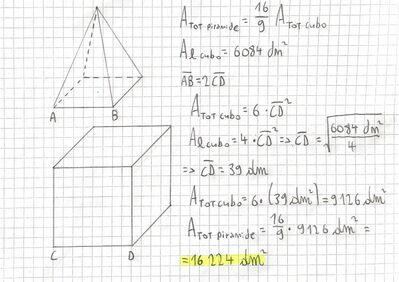 A TOT piramide = 16/9 A TOT cubo
A l cubo = 6084 dm²
A̅B̅ = 2C̅D̅
A TOT cubo = 6 · C̅D̅²
A l cubo = 4 · C̅D̅² => C̅D̅ = √(6084 dm²/4)
=> C̅D̅ = 39 dm
A TOT cubo = 6 · (39 dm²) = 9126 dm²
A TOT piramide = 16/9 · 9126 dm² =
= 16 224 dm²
A B
C D